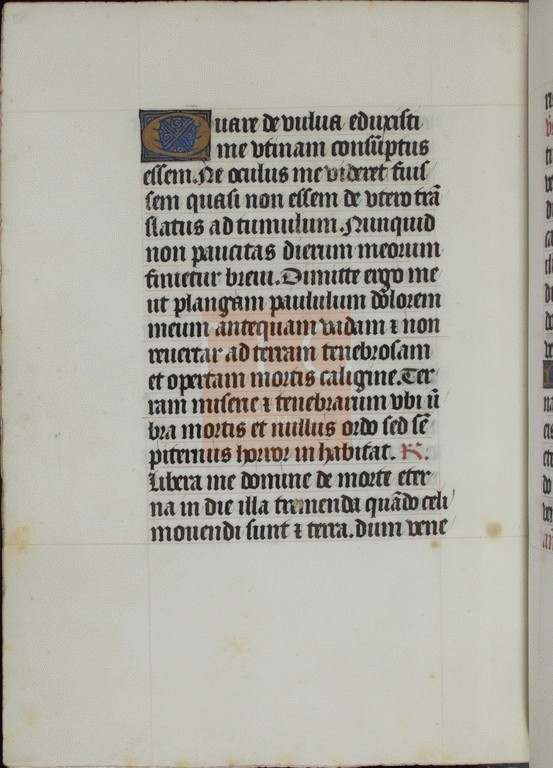 Quare de vulua eduxisti
me vtinam consūptus
essem. Ne oculus me videret fuis
sem quasi non essem de vtero trā
slatus ad tumulum. Nunquid
non paucitas dierum meorum
finietur breui. Dimitte ergo me
ut plangam paululum dolorem
meum antequam vadam ⁊ non
reuertar ad terram tenebrosam
et opertam mortis caligine. Ter
ram miserie ⁊ tenebrarum vbi ū
bra mortis et nullus ordo sed sē
piternus horror inhabitat. R.
Libera me domine de morte eter
na in die illa tremenda quādo celi
mouendi sunt ⁊ terra. dum vene